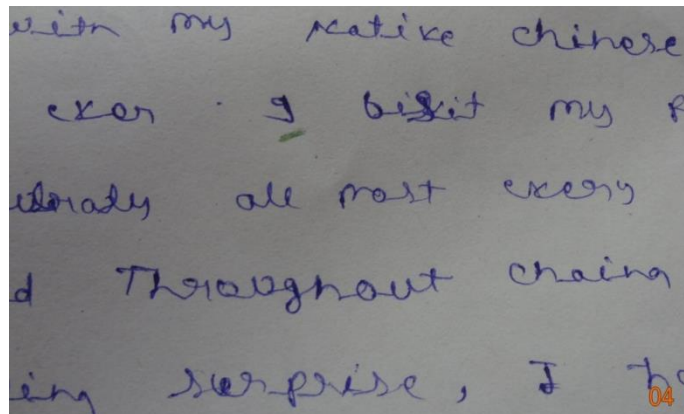 with my native chinese
exer. I bisit my
all most exery
d Throughout chaina
ing surprise, I
04